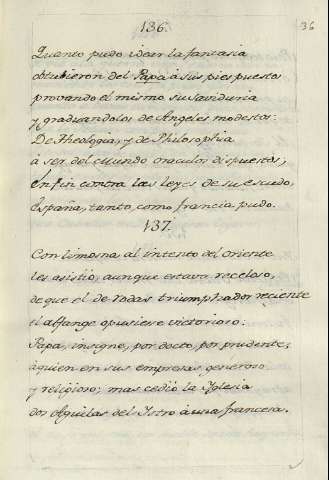 136.
36
Quanto pudo idear la fantasia
obtubieron del Papa à sus pies puestos
provando el mismo su saviduria
y graduandolos de Angeles modestos:
De Theologia, y de Philosophia
à ser del Mundo oraculos dispuestos,
En fin contra las leyes de su escudo,
España, tanto, como francia pudo.
137.
Con limosna al intento del oriente
les asistio, aunque estava receloso,
de que el de Rodas triumphador reciente
el alfange opusiere victorioso:
Papa, insigne, por docto, por prudente;
à quien en sus empresas generoso
y religioso; mas cediò la Iglesia
dos Aguilas del Istro à una francesa.